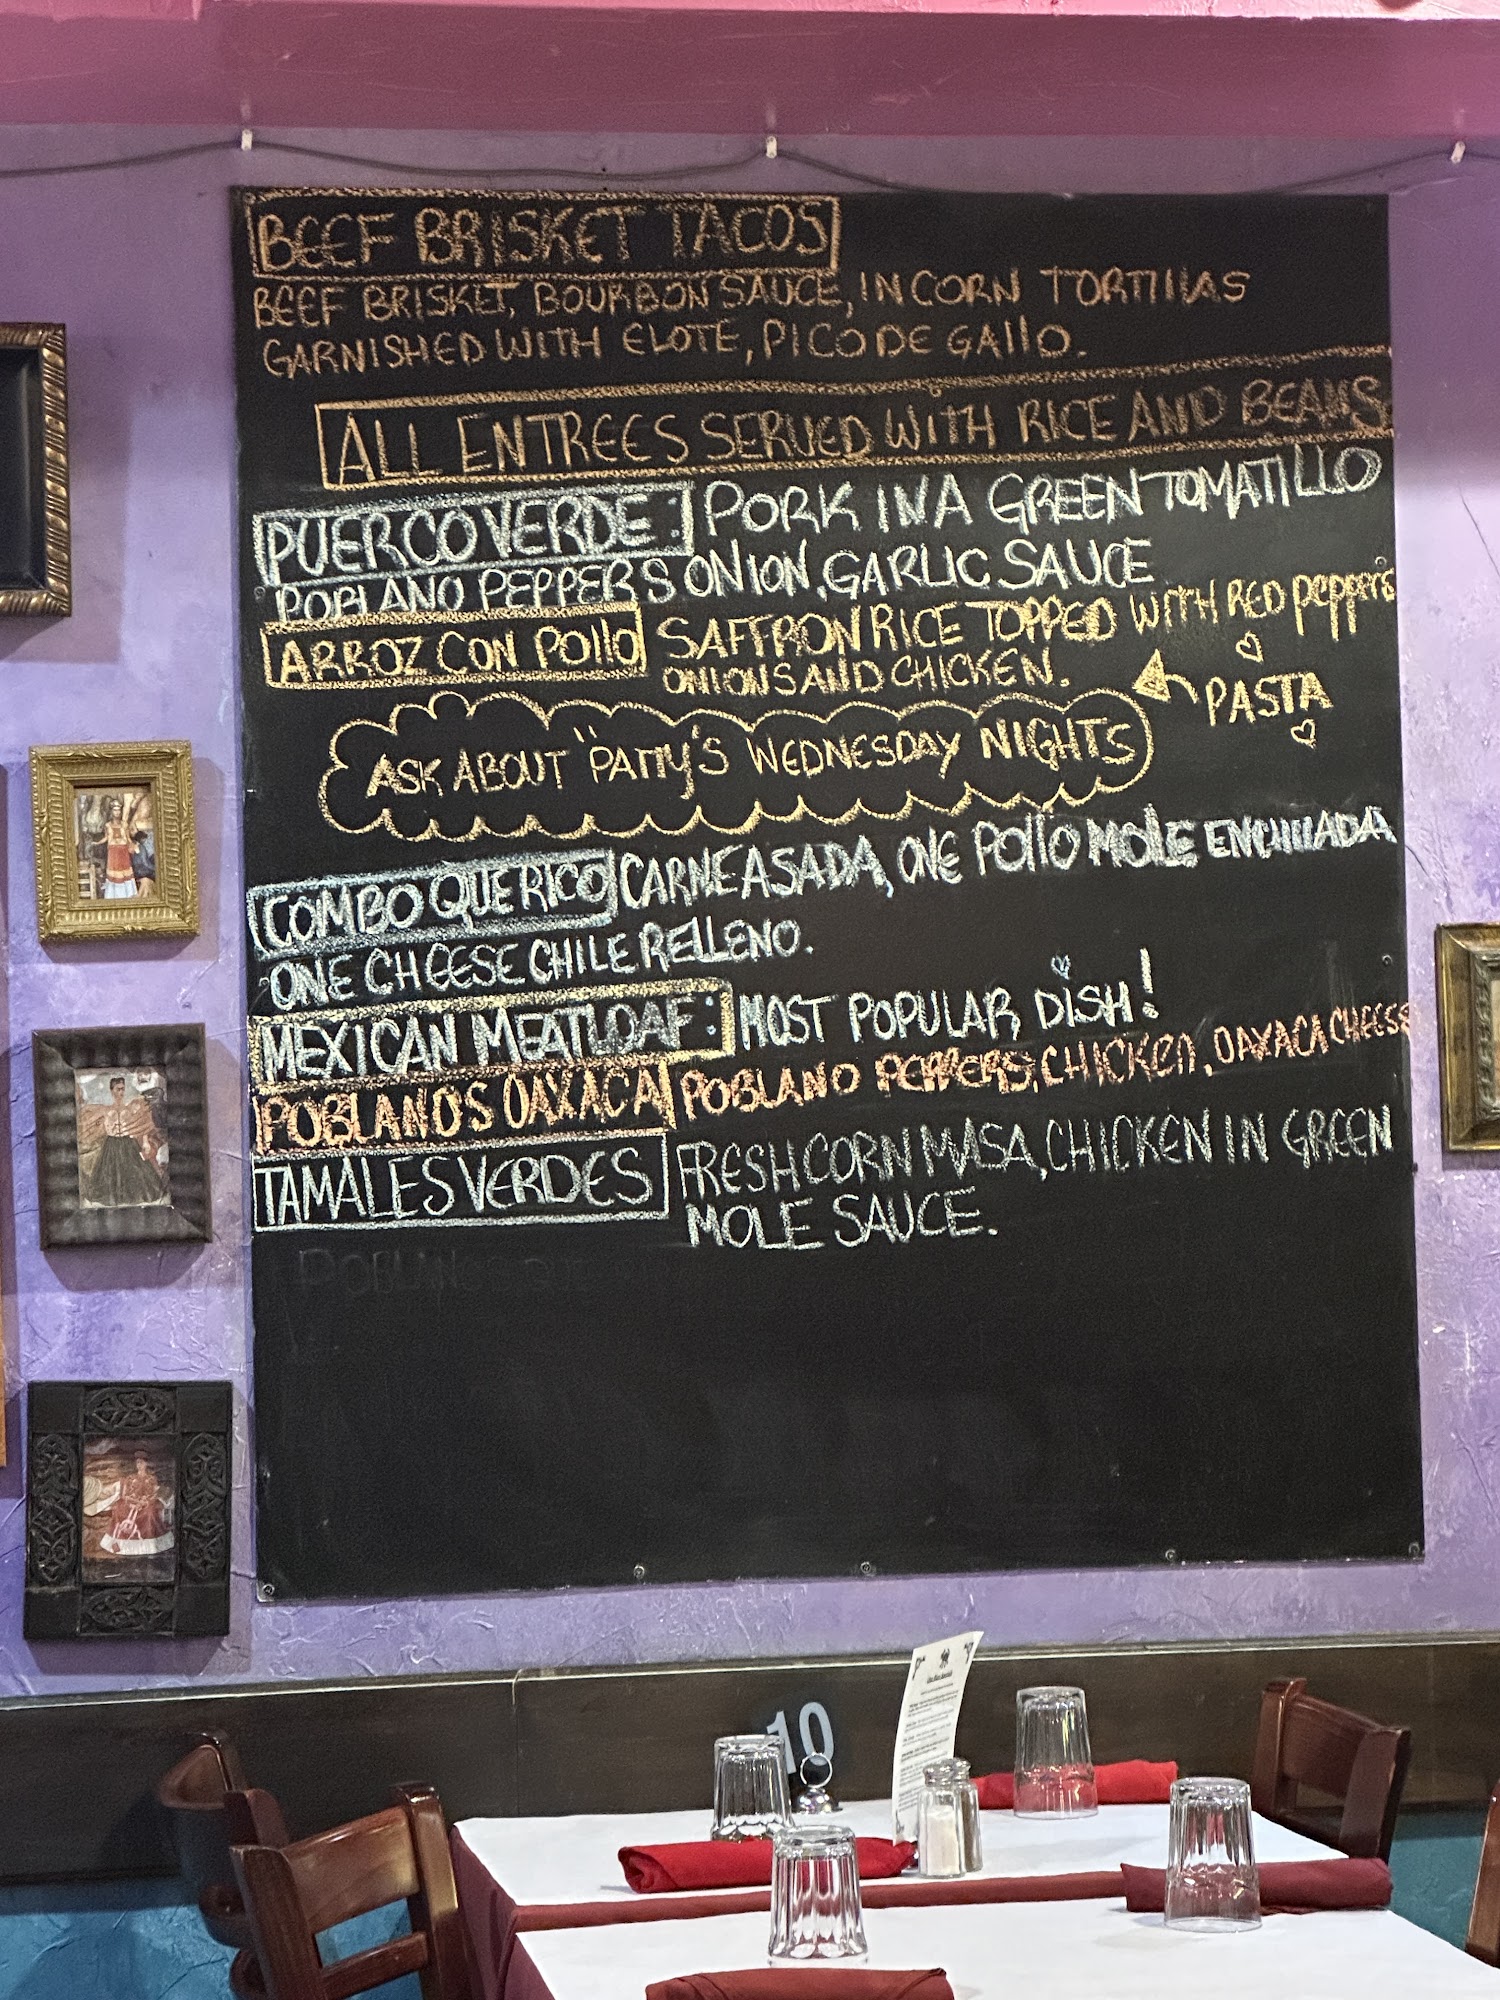 BEEF BRISKET TACOS
BEEF BRISKET, BOURBON SAUCE, IN CORN TORTILLAS
GARNISHED WITH ELOTE, PICO DE GALLO.
ALL ENTREES SERVED WITH RICE AND BEANS
PUERCO VERDE: PORK IN A GREEN TOMATILLO
POBLANO PEPPERS ONION, GARLIC SAUCE
ARROZ CON POLLO SAFFRON RICE TOPPED WITH RED PEPPERS
ONIONS AND CHICKEN.
PASTA
ASK ABOUT "PATTY'S WEDNESDAY NIGHTS
COMBO QUE RICO CARNE ASADA, ONE POLLO MOLE ENCHILADA
ONE CHEESE CHILE RELLENO.
MEXICAN MEATLOAF: MOST POPULAR DISH!
POBLANO'S OAXACA POBLANO PEPPERS, CHICKEN, OAXACA CHEESE
TAMALES VERDES FRESH CORN MASA, CHICKEN IN GREEN
MOLE SAUCE.
10